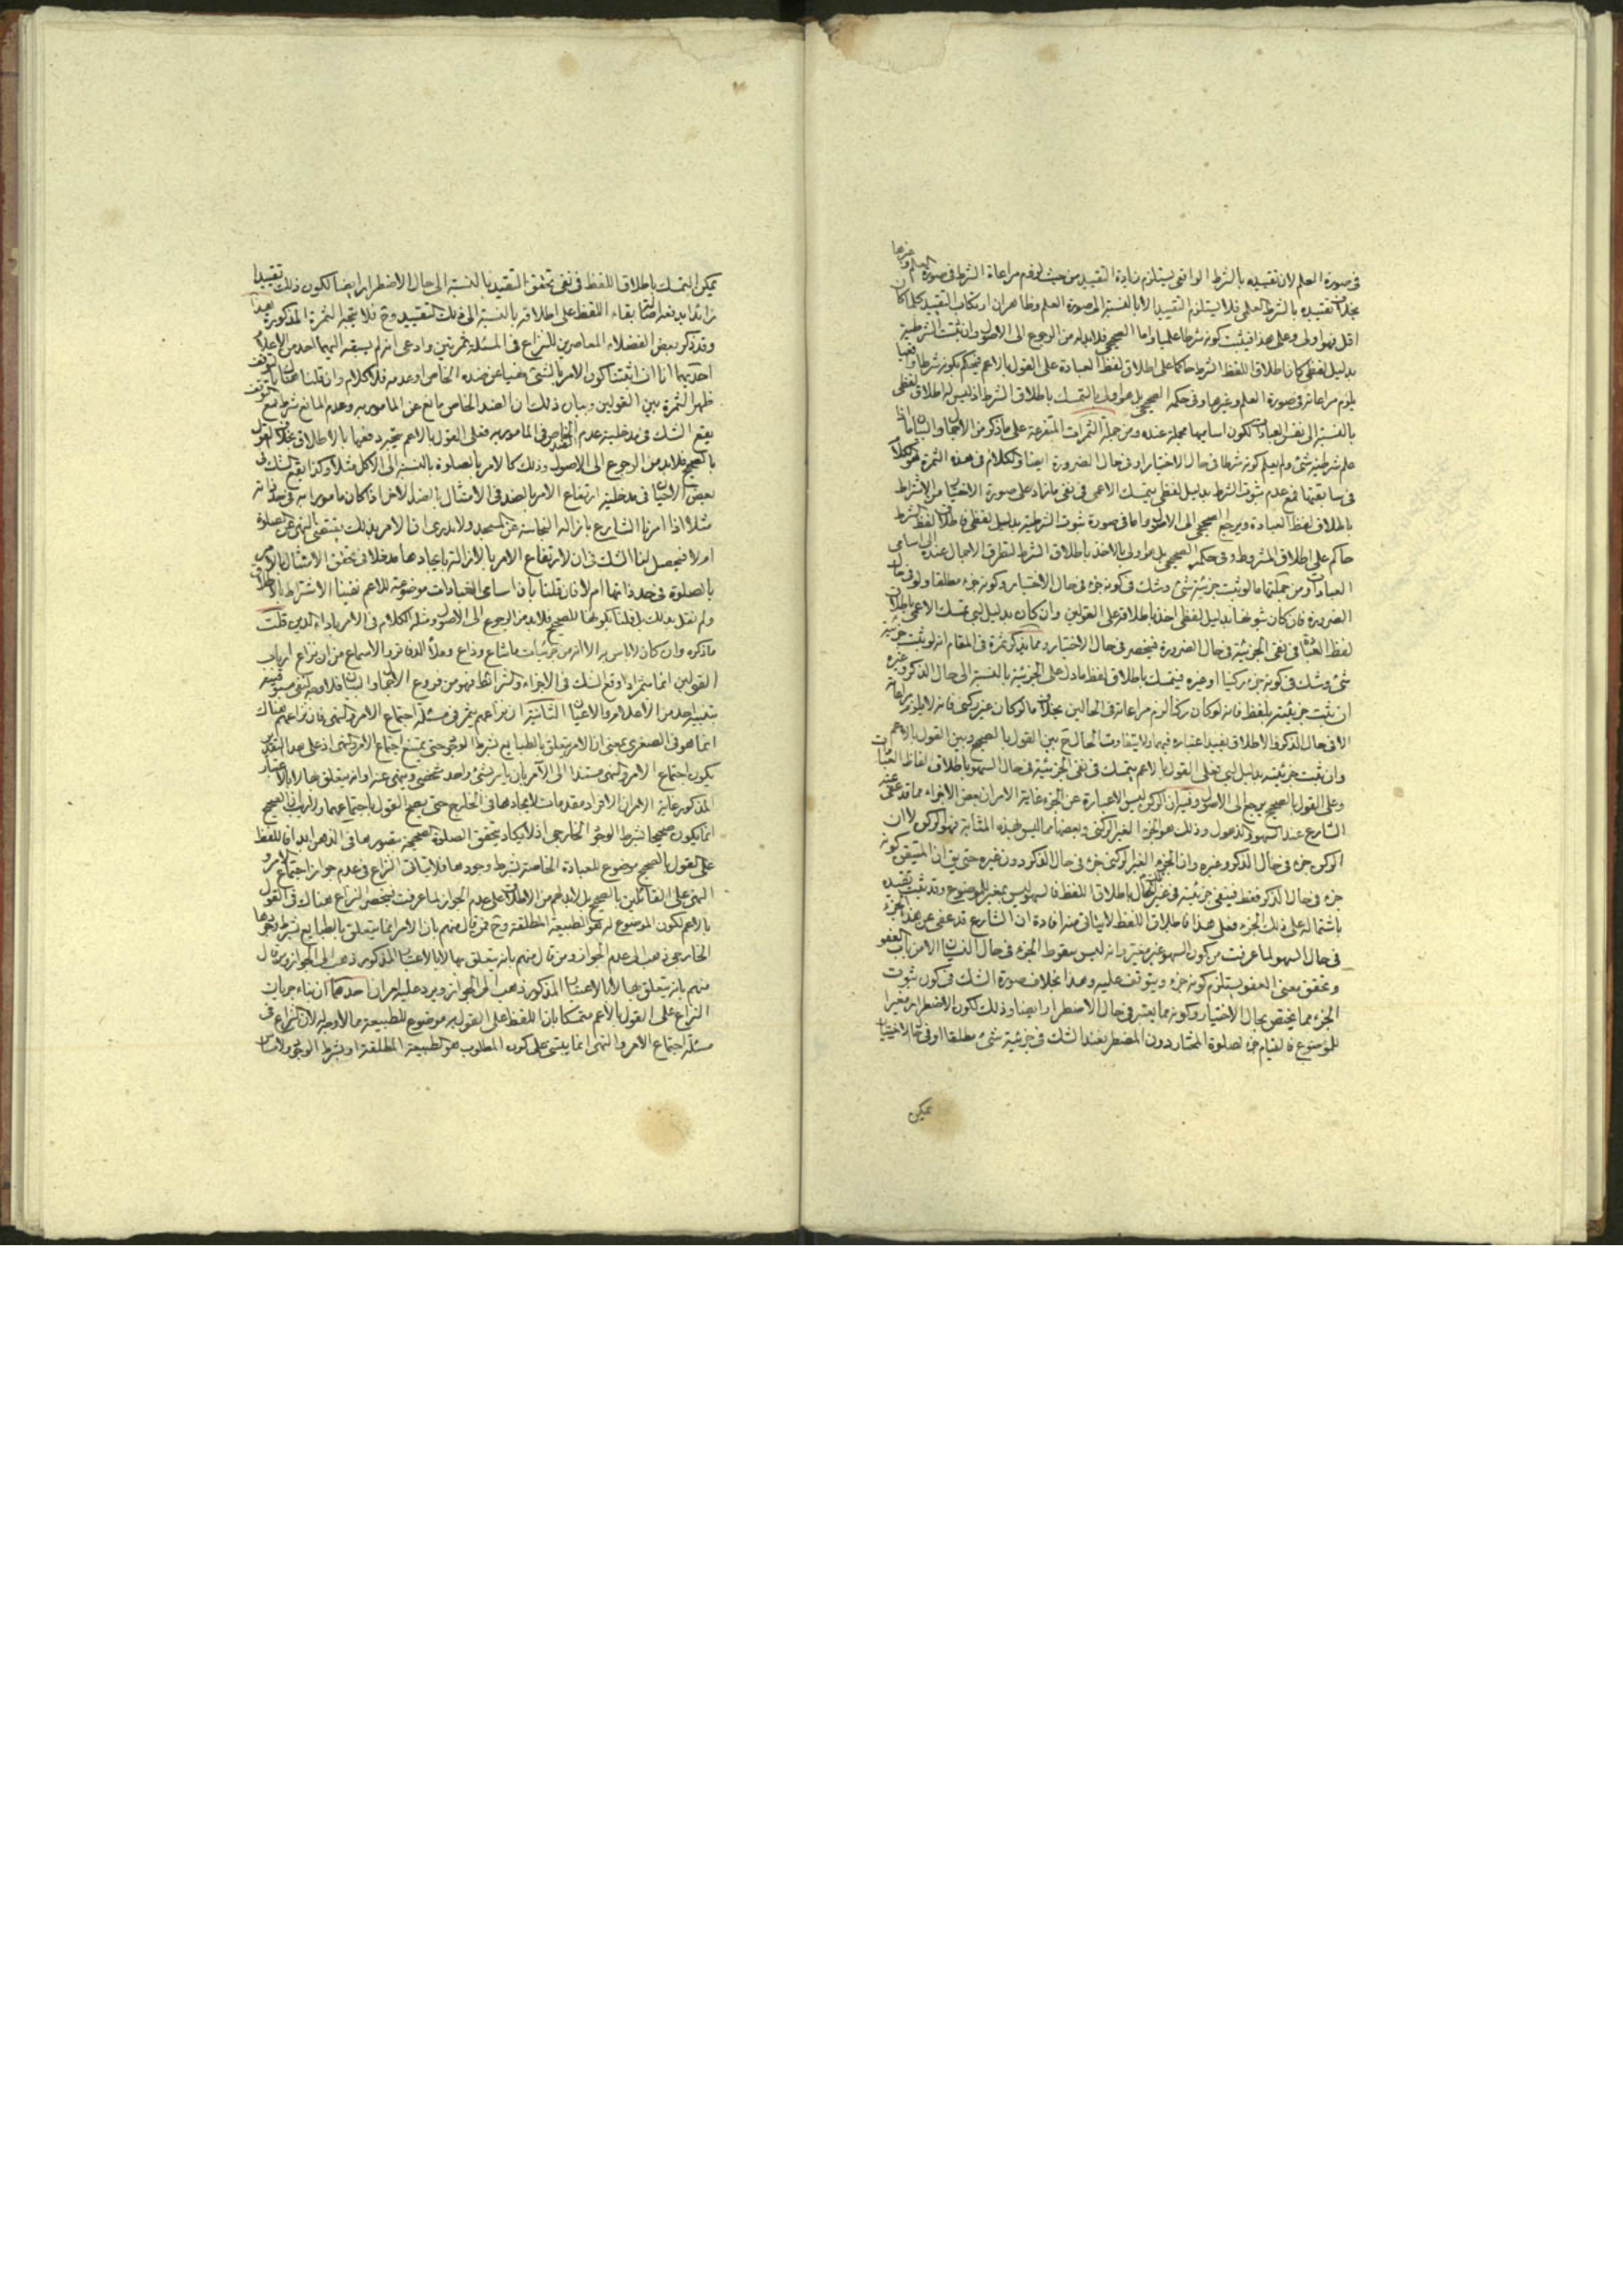 في صورة العلم لان تقييده بالشرط الواقعي يستلزم زيادة التقييد من حيث لزوم مراعاة الشرط في صورة العلم وغيرها
بخلاف تقييده بالشرط العلمي فلا يستلزم التقييد الا بالنسبة الى صورة العلم وظاهر ان ارتكاب التقييد كلما كان
اقل فهو اولى وعلى هذا فيثبت كونه شرطا علميا واما الصحيحي فلا بد له من الرجوع الى الاصول وان ثبت الشرطية
بدليل لفظي كان اطلاق اللفظ الشرط حاكما على اطلاق لفظ العبادة على القول بالاعم فيحكم بكونه شرطا واقعيا
يلزم مراعاته في صورة العلم وغيرها وفي حكمه الصحيحي بل هو اولى بالتمسك باطلاق الشرط اذ ليس له اطلاق لفظي
بالنسبة الى نفس العبادات لكون اساميها مجملة عنده ومن جملة الثمرات المتفرعة على ما ذكر من الاجمال والبيان ما اذا
علم شرطية شئ ولم يعلم كونه شرطا في حال الاختيار او في حال الضرورة ايضا والكلام في هذه الثمرة هو الكلام
في سابقتها فمع عدم ثبوت الشرط بدليل لفظي يتمسك الاعمي في نفي ما زاد على صورة الاختيار من الاشتراط
باطلاق لفظ العبادة ويرجع الصحيحي الى الاصول واما في صورة ثبوت الشرطية بدليل لفظي فاطلاق لفظ الشرط
حاكم على اطلاق المشروط وفي حكمه الصحيحي بل هو اولى بالاخذ باطلاق الشرط لتطرق الاجمال عنده الى اسامي
العبادات ومن جملتها ما لو ثبت جزئية شئ وشك في كونه جزء في حال الاختيار وكونه جزء مطلقا ولو في حال
الضرورة فان كان ثبوتها بدليل لفظي اخذ باطلاقه على القولين وان كان بدليل لبي تمسك الاعمي باطلاق
لفظ العبادة في نفي الجزئية في حال الضرورة فيختصر في حال الاختيار ومما يذكر ثمرة في المقام انه لو ثبت جزئية
شئ وشك في كونه جزء ركنيا او غيره فيتمسك باطلاق لفظ ما دل على الجزئية بالنسبة الى حال الذكر وغيره
ان ثبت جزئيته بلفظ فانه لو كان ركنا لزم مراعاته في الحالين بخلاف ما لو كان غير ركني فانه لا يلزم مراعاته
الا في حال الذكر والاطلاق يفيد اعتباره فيهما ولا يتفاوت الحال ح بين القول بالصحيح وبين القول بالاعم
وان ثبت جزئيته بدليل لبي فعلى القول بالاعم يتمسك في نفي الجزئية في حال السهو باطلاق الفاظ العبادات
وعلى القول بالصحيح يرجع الى الاصول وفيه ان الركن ليس الا عبارة عن الجزء غاية الامر ان بعض الاجزاء مما قد عفى عنه
الشارع عند السهو والذهول وذلك هو الجزء الغير الركني وبعضها مما ليس بهذه المثابة فهو الركن لا ان
الركن جزء في حال الذكر وغيره وان الجزء الغير الركني جزء في حال الذكر دون غيره حتى يق ان المتيقن كونه
جزء في حال الذكر فقط فينفى جزئيته في غير تلك الحال باطلاق اللفظ فالسهو ليس بمغير للموضوع وقد ثبت تقيده
باشتماله على ذلك الجزء فعلى هذا فاطلاق اللفظ لا ينافي منه افادة ان الشارع قد عفى عن هذا الجزء
في حال السهو لما عرفت من كون السهو غير مغير وانه ليس سقوط الجزء في حال النسيان الا من باب العفو
وتحقق معنى العفو يستلزم كونه جزء ويتوقف عليه وهذا بخلاف صورة الشك في كون ثبوت
الجزء مما يختص بحال الاختيار وكونه مما يعتبر في حال الاضطرار ايضا وذلك لكون الاضطرار مغيرا
للموضوع فالقيام جزء لصلوة المختار دون المضطر فعند الشك في جزئية شئ مطلقا او في حال الاختيار
يمكن
يمكن التمسك باطلاق اللفظ في نفي تحقق التقييد بالنسبة الى حال الاضطرار ايضا لكون ذلك تقييدا
زائدا يدفعه اصالة بقاء اللفظ على اطلاقه بالنسبة الى ذلك التقييد وح فلا يتجه الثمرة المذكورة هذا
وقد ذكر بعض الفضلاء المعاصرين للنزاع في المسئلة ثمرتين وادعى انه لم يسبقه اليهما احد من الاعلام
احديهما انا ان اثبتنا كون الامر بالشئ نهيا عن ضده الخاص او عدمه فلا كلام وان قلنا هناك بالتوقف
ظهر الثمرة بين القولين وبيان ذلك ان الضد الخاص مانع عن المامور به وعدم المانع شرط فمع التوقف
يقع الشك في مدخلية عدم الضد الخاص في المامور به فعلى القول بالاعم يتجه دفعها بالاطلاق بخلاف القول
بالصحيح فلا بد من الرجوع الى الاصول وذلك كالامر بالصلوة بالنسبة الى الاكل مثلا وكذا يقع الشك في
بعض الاحيان في مدخلية ارتفاع الامر بالضد في الامتثال بالضد الاخر اذا كان مامورا به في حد ذاته
مثلا اذا امرنا الشارع بازالة النجاسة عن المسجد ولا ندري ان الامر بذلك يقتضي النهي عن الصلوة
ام لا فيحصل لنا الشك في ان لارتفاع الامر بالازالة بايجادها مدخلا في تحقق الامتثال بالامر
بالصلوة في حد ذاتها ام لا فان قلنا بان اسامي العبادات موضوعة للاعم نفينا الاشتراط بالاطلاق
ولم نقل بذلك بل قلنا بكونها للصحيح فلا بد من الرجوع الى الاصول ومثله الكلام في الامر باداء الدين قلت
ما ذكره وان كان لا باس به الا انه من جزئيات ما شاع وذاع وملأ الدفاتر والاسماع من ان نزاع ارباب
القولين انما يثمر اذا وقع الشك في الاجزاء والشرائط فهو من فروع الاجمال والبيان فلا وجه لنفي مسبوقيته
بتنبيه احد من الاعلام والاعيان الثانية ان نزاعهم يثمر في مسئلة اجتماع الامر والنهي فان نزاعهم هناك
انما هو في الصغرى بمعنى ان الامر يتعلق بالطبايع بشرط الوجود حتى يمتنع اجتماع الامر والنهي اذ على هذا التقدير
يكون اجتماع الامر والنهي مستندا الى الآمر بان يامر بشئ واحد شخصي وينهى عنه او انه يتعلق بها لا بالاعتبار
المذكور غاية الامر ان الافراد مقدمات لايجادها في الخارج حتى يصح القول باجتماعهما ولا ريب ان الصحيح
انما يكون صحيحا بشرط الوجود الخارجي اذ لا يكاد يتحقق الصلوة الصحيحة بتصورها في الذهن ابدا فاللفظ
على القول بالصحيح موضوع للعبادة الخاصة بشرط وجودها فلا يتاتى النزاع في عدم جواز اجتماع الامر و
النهي على القائلين بالصحيح بل لا بد لهم من الاطلاق على عدم الجواز لما عرفت فيختص النزاع هناك في القول
بالاعم لكون الموضوع له هو الطبيعة المطلقة وح فمن قال منهم بان الامر انما يتعلق بالطبايع بشرط وجودها
الخارجي ذهب الى عدم الجواز ومن قال منهم بانه يتعلق بها لا بالاعتبار المذكور ذهب الى الجواز ومن قال
منهم بانه يتعلق بها لا بالاعتبار المذكور ذهب الى الجواز ويرد عليه امران احدهما ان بناء جريان
النزاع على القول بالاعم متمسكا بان اللفظ على القول به موضوع للطبيعة مما لا وجه له لان النزاع في
مسئلة اجتماع الامر والنهي انما يبتنى على كون المطلوب هو الطبيعة المطلقة او بشرط الوجود ولا